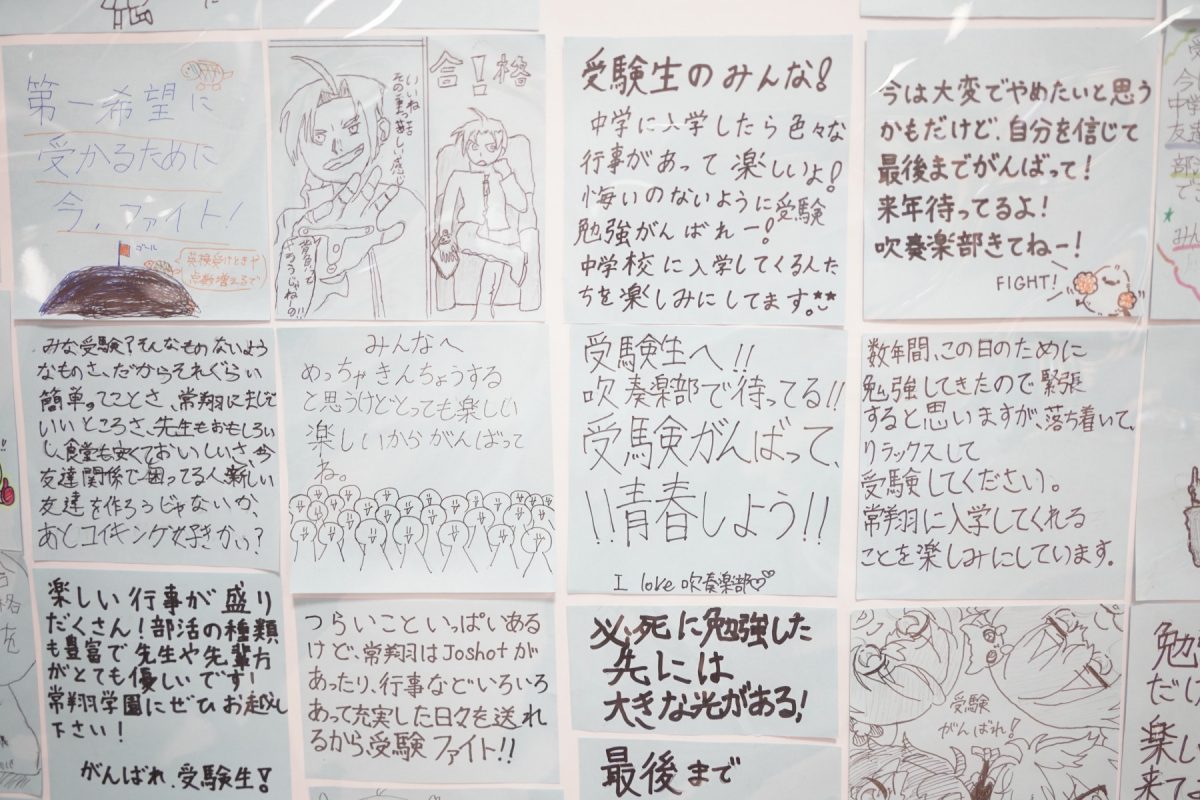 第一希望に
受かるために
今、ファイト!
ゴール
点検受けときや
点数増えるで
いいね
その重っ苦しい感じ
背負って
やろうじゃねーの!!
合!格
受験生のみんな!
中学に入学したら色々な
行事があって楽しいよ!
悔いのないように受験
勉強がんばれー!
中学校に入学してくる人た
ちを楽しみにしてます。**
今は大変でやめたいと思う
かもだけど、自分を信じて
最後までがんばって!
来年待ってるよ!
吹奏楽部きてねー!
FIGHT!
みな受験?そんなものないよう
なものさ、だからそれぐらい
簡単ってことさ、常翔にまして
いいところさ、先生もおもしろい
し、食堂も安くておいしいさ、今
友達関係で困ってる人、新しい
友達を作ろうじゃないか、
あとコイキング好きかい?
みんなへ
めっちゃきんちょうする
と思うけどとっても楽しい
楽しいからがんばって
ね。
受験生へ!!
吹奏楽部で待ってる!!
受験がんばって、
!!青春しよう!!
I love 吹奏楽部♡♡
数年間、この日のために
勉強してきたので緊張
すると思いますが、落ち着いて、
リラックスして
受験してください。
常翔に入学してくれる
ことを楽しみにしています。
楽しい行事が盛り
だくさん!部活の種類
も豊富で先生や先輩方
がとても優しいです!
常翔学園にぜひお越し
下さい!
がんばれ、受験生!
つらいこといっぱいある
けど、常翔はJoshotが
あったり、行事などいろいろ
あって充実した日々を送れ
るから、受験ファイト!!
必死に勉強した
先には
大きな光がある!
最後まで
受験
がんばれ!